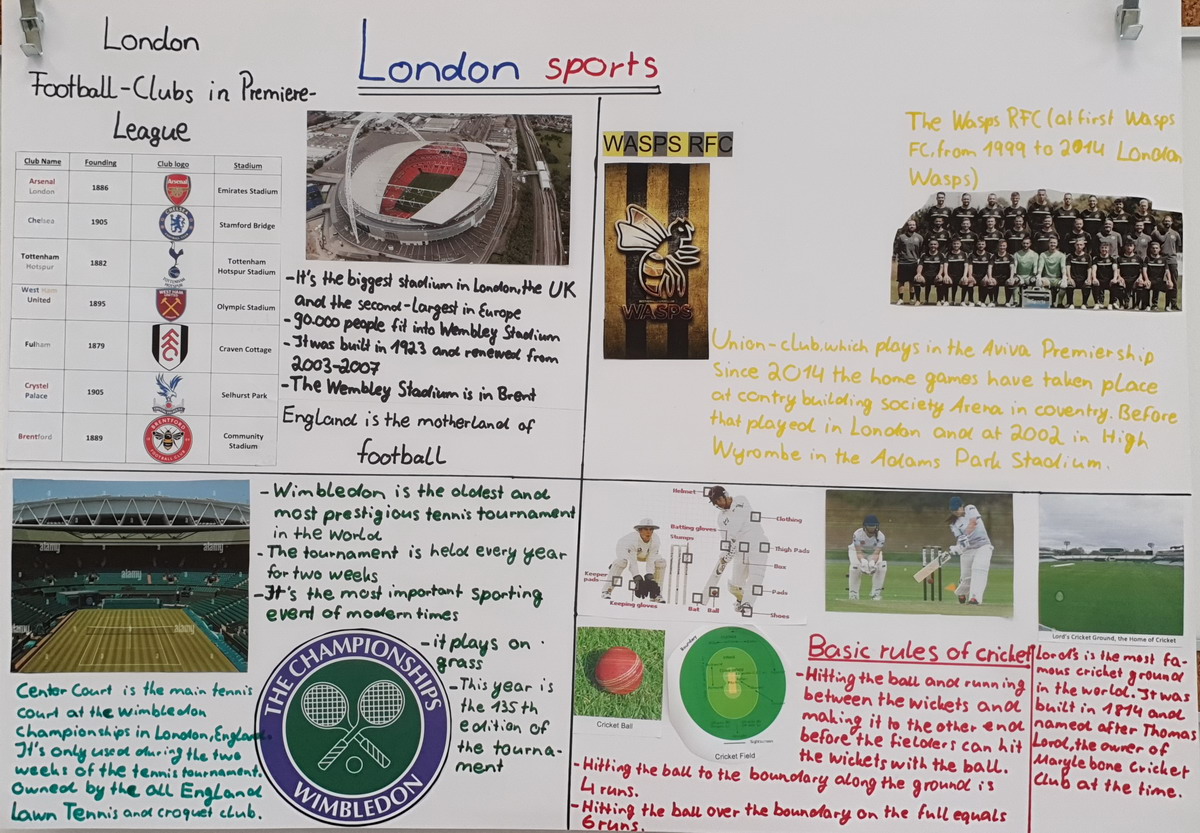 London
Football-Clubs in Premiere-
League
London sports
Club Name Founding Club logo Stadium
Arsenal London 1886 Arsenal Emirates Stadium
Chelsea 1905 CHELSEA Stamford Bridge
Tottenham Hotspur 1882 TOTTENHAM HOTSPUR Tottenham Hotspur Stadium
West Ham United 1895 WEST HAM Olympic Stadium
Fulham 1879 FFC Craven Cottage
Crystal Palace 1905 Selhurst Park
Brentford 1889 BRENTFORD FOOTBALL CLUB Community Stadium
-It's the biggest stadium in London, the UK
and the second-largest in Europe
-90.000 people fit into Wembley Stadium
-It was built in 1923 and renewed from
2003-2007
-The Wembley Stadium is in Brent
England is the motherland of
football
WASPS RFC
WASPS
The Wasps RFC (at first Wasps
FC, from 1999 to 2014 London
Wasps)
Union-club, which plays in the Aviva Premiership
Since 2014 the home games have taken place
at contry building society Arena in coventry. Before
that played in London and at 2002 in High
Wyrombe in the Adams Park Stadium.
alamy
alamy
alamy
alamy
alamy
- Wimbledon is the oldest and
most prestigious tennis tournament
in the world
-The tournament is held every year
for two weeks
-It's the most important sporting
event of modern times
-it plays on
grass
-This year is
the 135th
edition of
the tourna-
ment
THE CHAMPIONSHIPS
WIMBLEDON
Center Court is the main tennis
court at the Wimbledon
championships in London, England.
It's only used during the two
weeks of the tennis tournament.
Owned by the all England
Lawn Tennis and croquet club.
Helmet
Clothing
Batting gloves
Stumps
Thigh Pads
Box
Keeper pads
Pads
Keeping gloves
Bat
Ball
Shoes
Cricket Ball
Boundary
Cricket Field
Lord's Cricket Ground, the Home of Cricket
Basic rules of cricket
-Hitting the ball and running
between the wickets and
making it to the other end
before the fielders can hit
the wickets with the ball.
-Hitting the ball to the boundary along the ground is
4 runs.
-Hitting the ball over the boundary on the full equals
6 runs.
Lord's is the most fa-
mous cricket ground
in the world. It was
built in 1814 and
named after Thomas
Lord, the owner of
Marylebone Cricket
Club at the time.